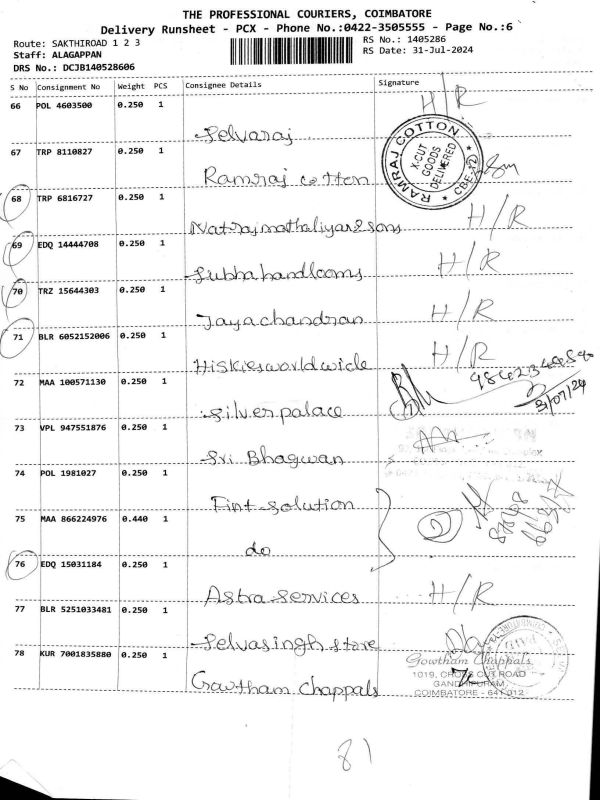 THE PROFESSIONAL COURIERS, COIMBATORE
Delivery Runsheet - PCX - Phone No.:0422-3505555 - Page No.:6
Route: SAKTHIROAD 1 2 3
RS No.: 1405286
Staff: ALAGAPPAN
RS Date: 31-Jul-2024
DRS No.: DCJB140528606
S No Consignment No Weight PCS Consignee Details Signature
66 POL 4603500 0.250 1 H/R
Selvaraj
67 TRP 8110827 0.250 1
Ramraj cotton
RAMRAJ COTTON
X-CUT
GOODS
DELIVERED
CBE-12
68 TRP 6816727 0.250 1
Natrajmathaliyar & sons H/R
69 EDQ 14444708 0.250 1
Subhahandlooms H/R
70 TRZ 15644303 0.250 1
Jayachandran H/R
71 BLR 6052152006 0.250 1
Hiskiesworldwide H/R
72 MAA 100571130 0.250 1
Silverpalace
31/07/24
73 VPL 947551876 0.250 1
Sri Bhagwan
74 POL 1981027 0.250 1
Fint solution
75 MAA 866224976 0.440 1
do
2
76 EDQ 15031184 0.250 1
Astra services H/R
77 BLR 5251033481 0.250 1
Selvasingh store
78 KUR 7001835880 0.250 1
Gowtham chappals
Gowtham Chappals
1019, CROSS CUT ROAD
GANDHIPURAM,
COIMBATORE - 641 012
81